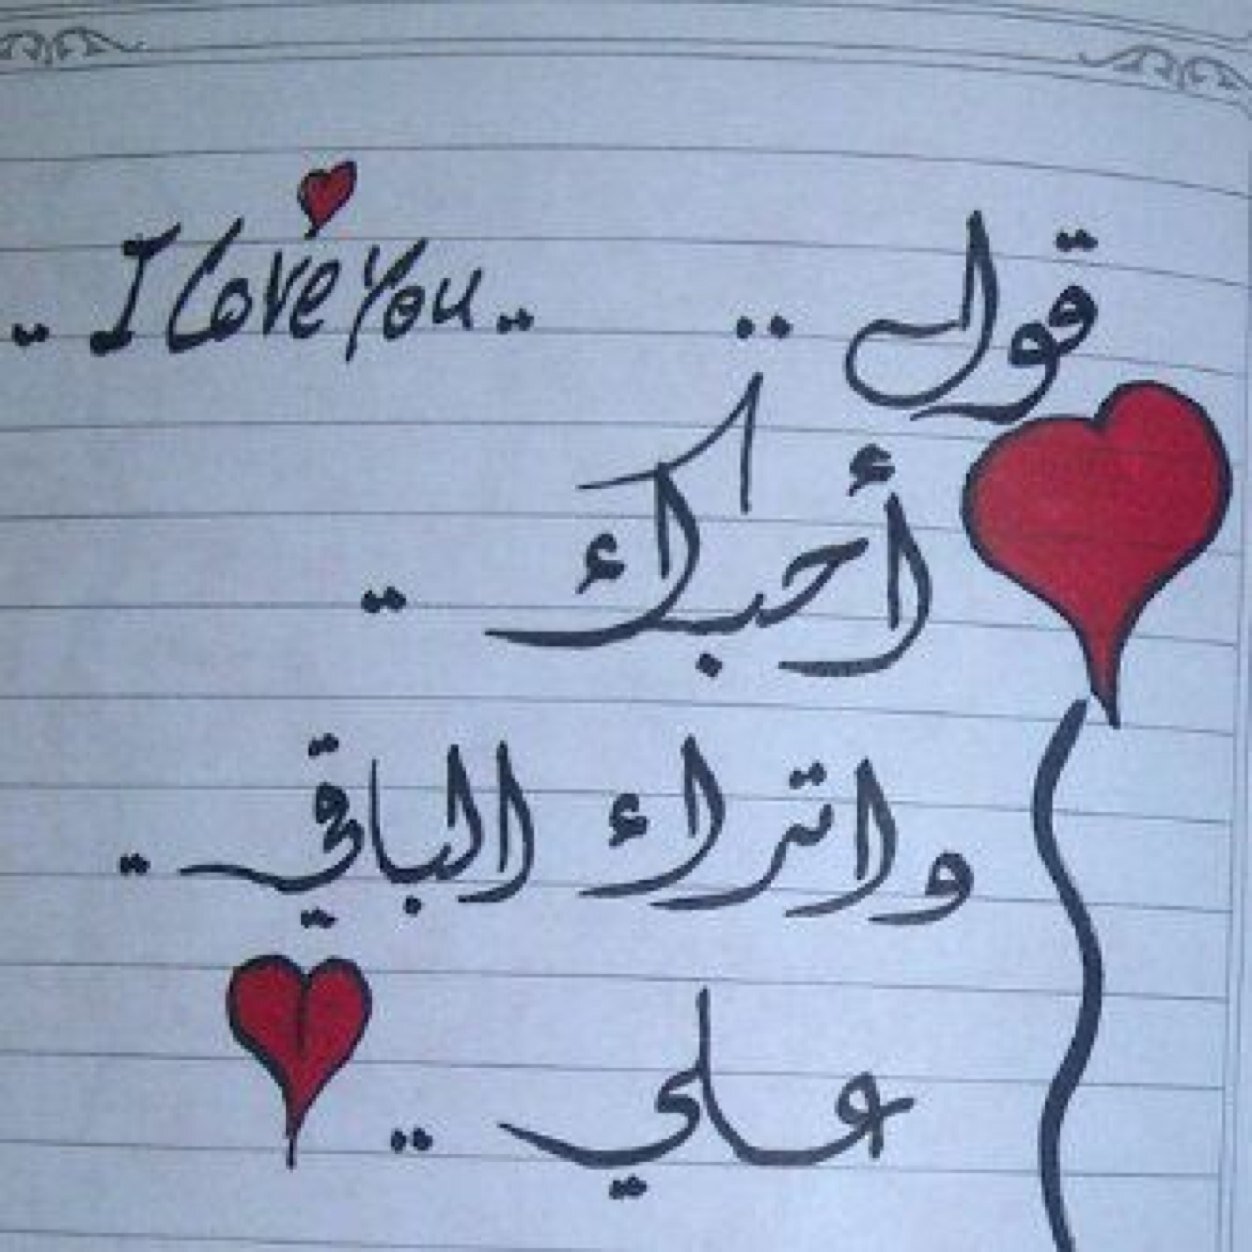 .. I Love You ..
قول ..
أحبك ..
واترك الباقي ..
علي ..